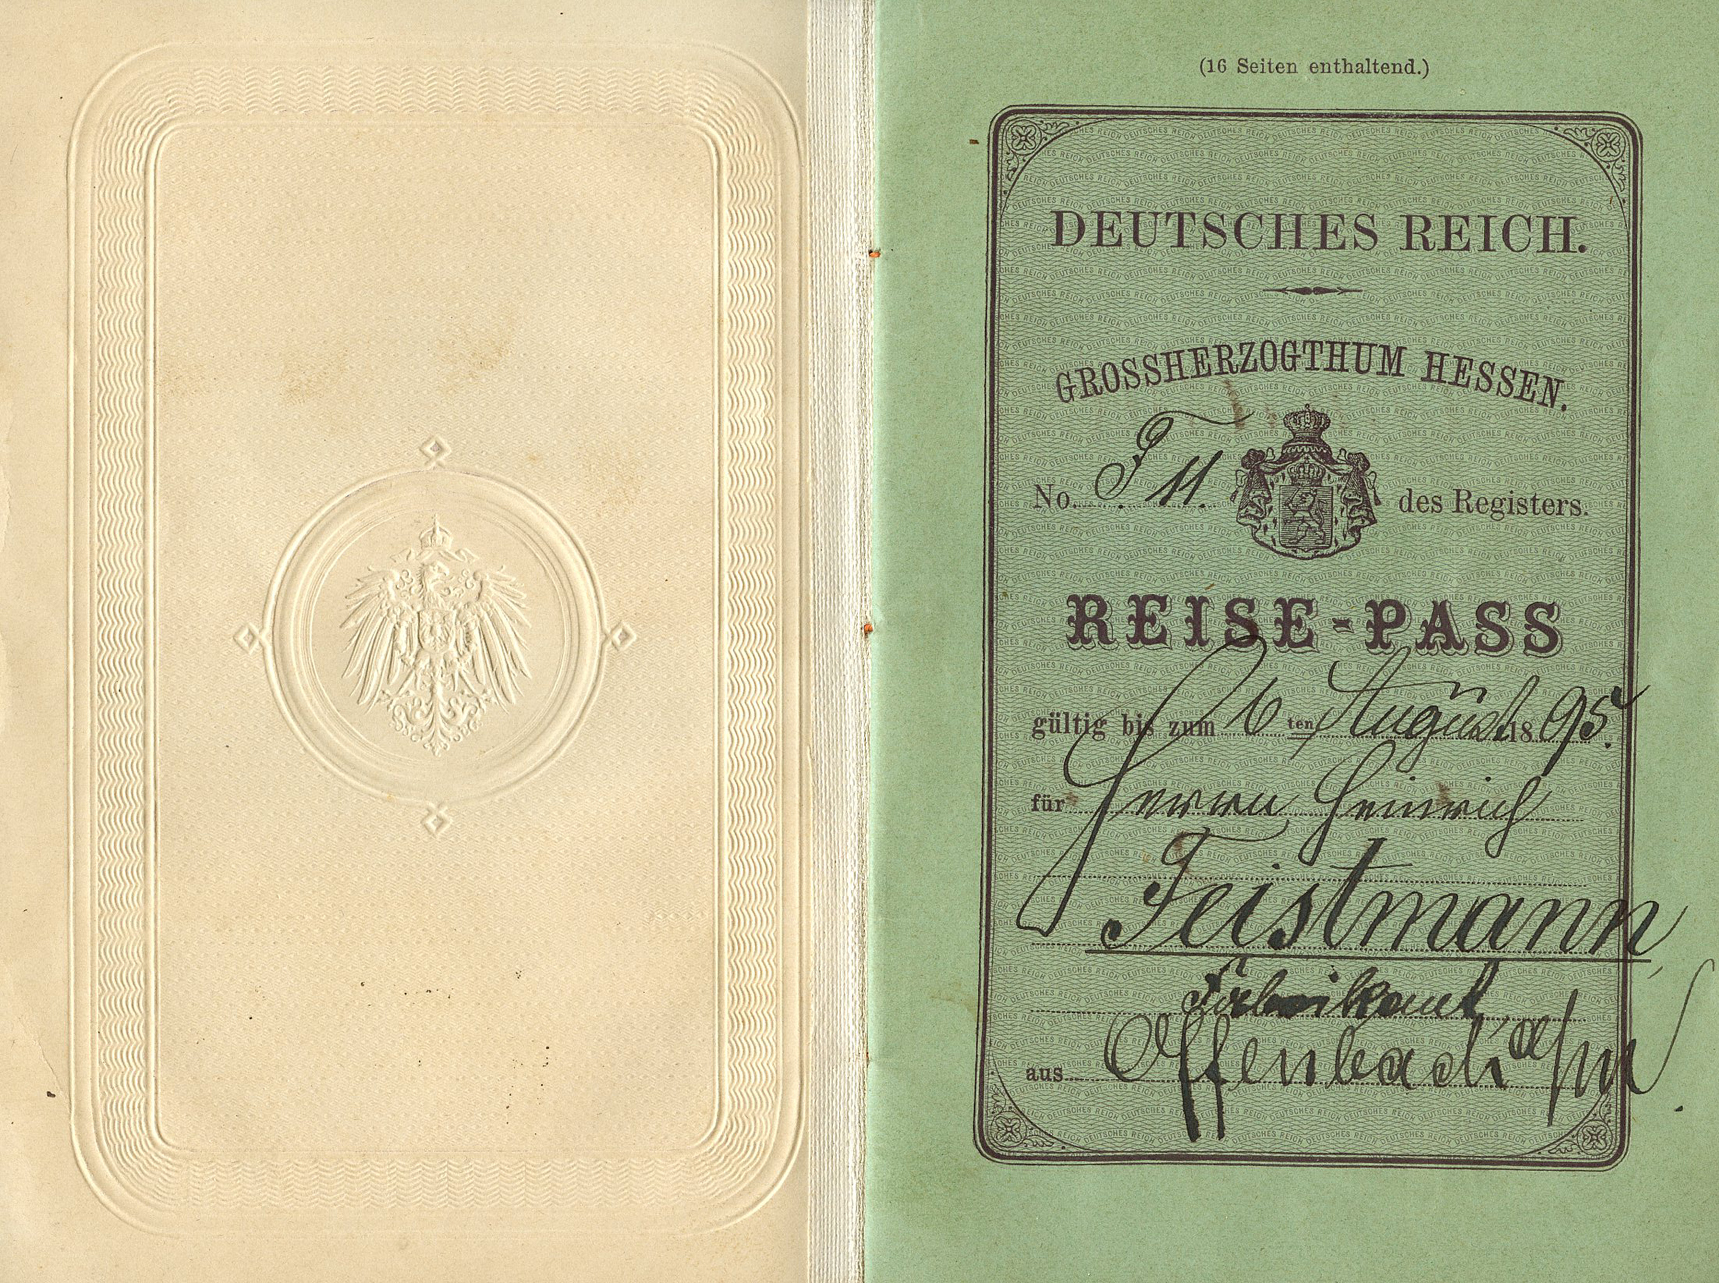 (16 Seiten enthaltend.)
DEUTSCHES REICH.
GROSSHERZOGTHUM HESSEN.
No. F 11. des Registers.
REISE-PASS
gültig bis zum 6 ten August 1895.
für Herrn Heinrich
Feistmann
Fabrikant
aus Offenbach a/m